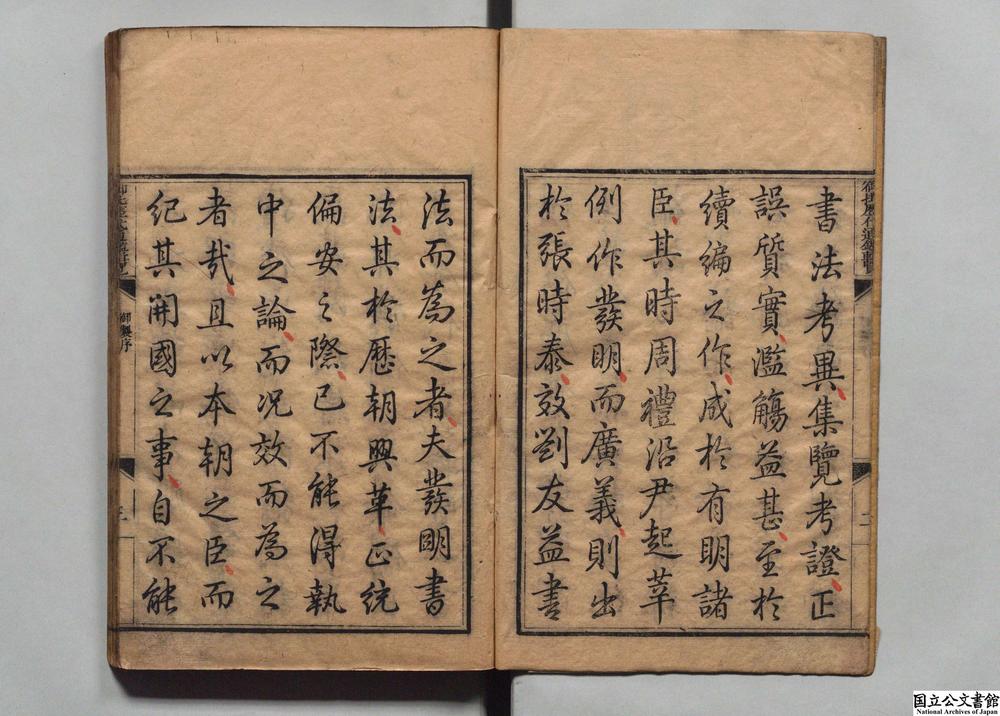 書法考異集覽考證正
誤質實濫觴益甚至於
續編之作成於有明諸
臣其時周禮沿尹起莘
例作發明而廣義則出
於張時泰效劉友益書
法而為之者夫發明書
法其於歷朝興革正統
偏安之際已不能得執
中之論而况效而為之
者哉且以本朝之臣而
紀其開國之事自不能
御製序
二
三
国立公文書館
National Archives of Japan